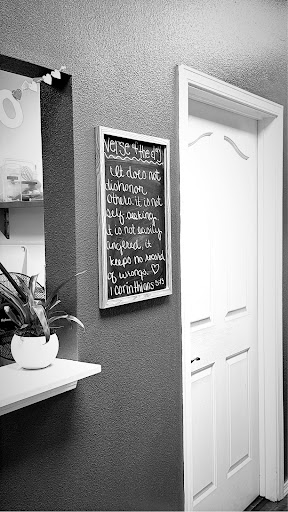 Verse of the day
It does not
dishonor
others, it is not
self seeking,
it is not easily
angered, it
keeps no record
of wrongs. ♡
1 corinthians 13:5